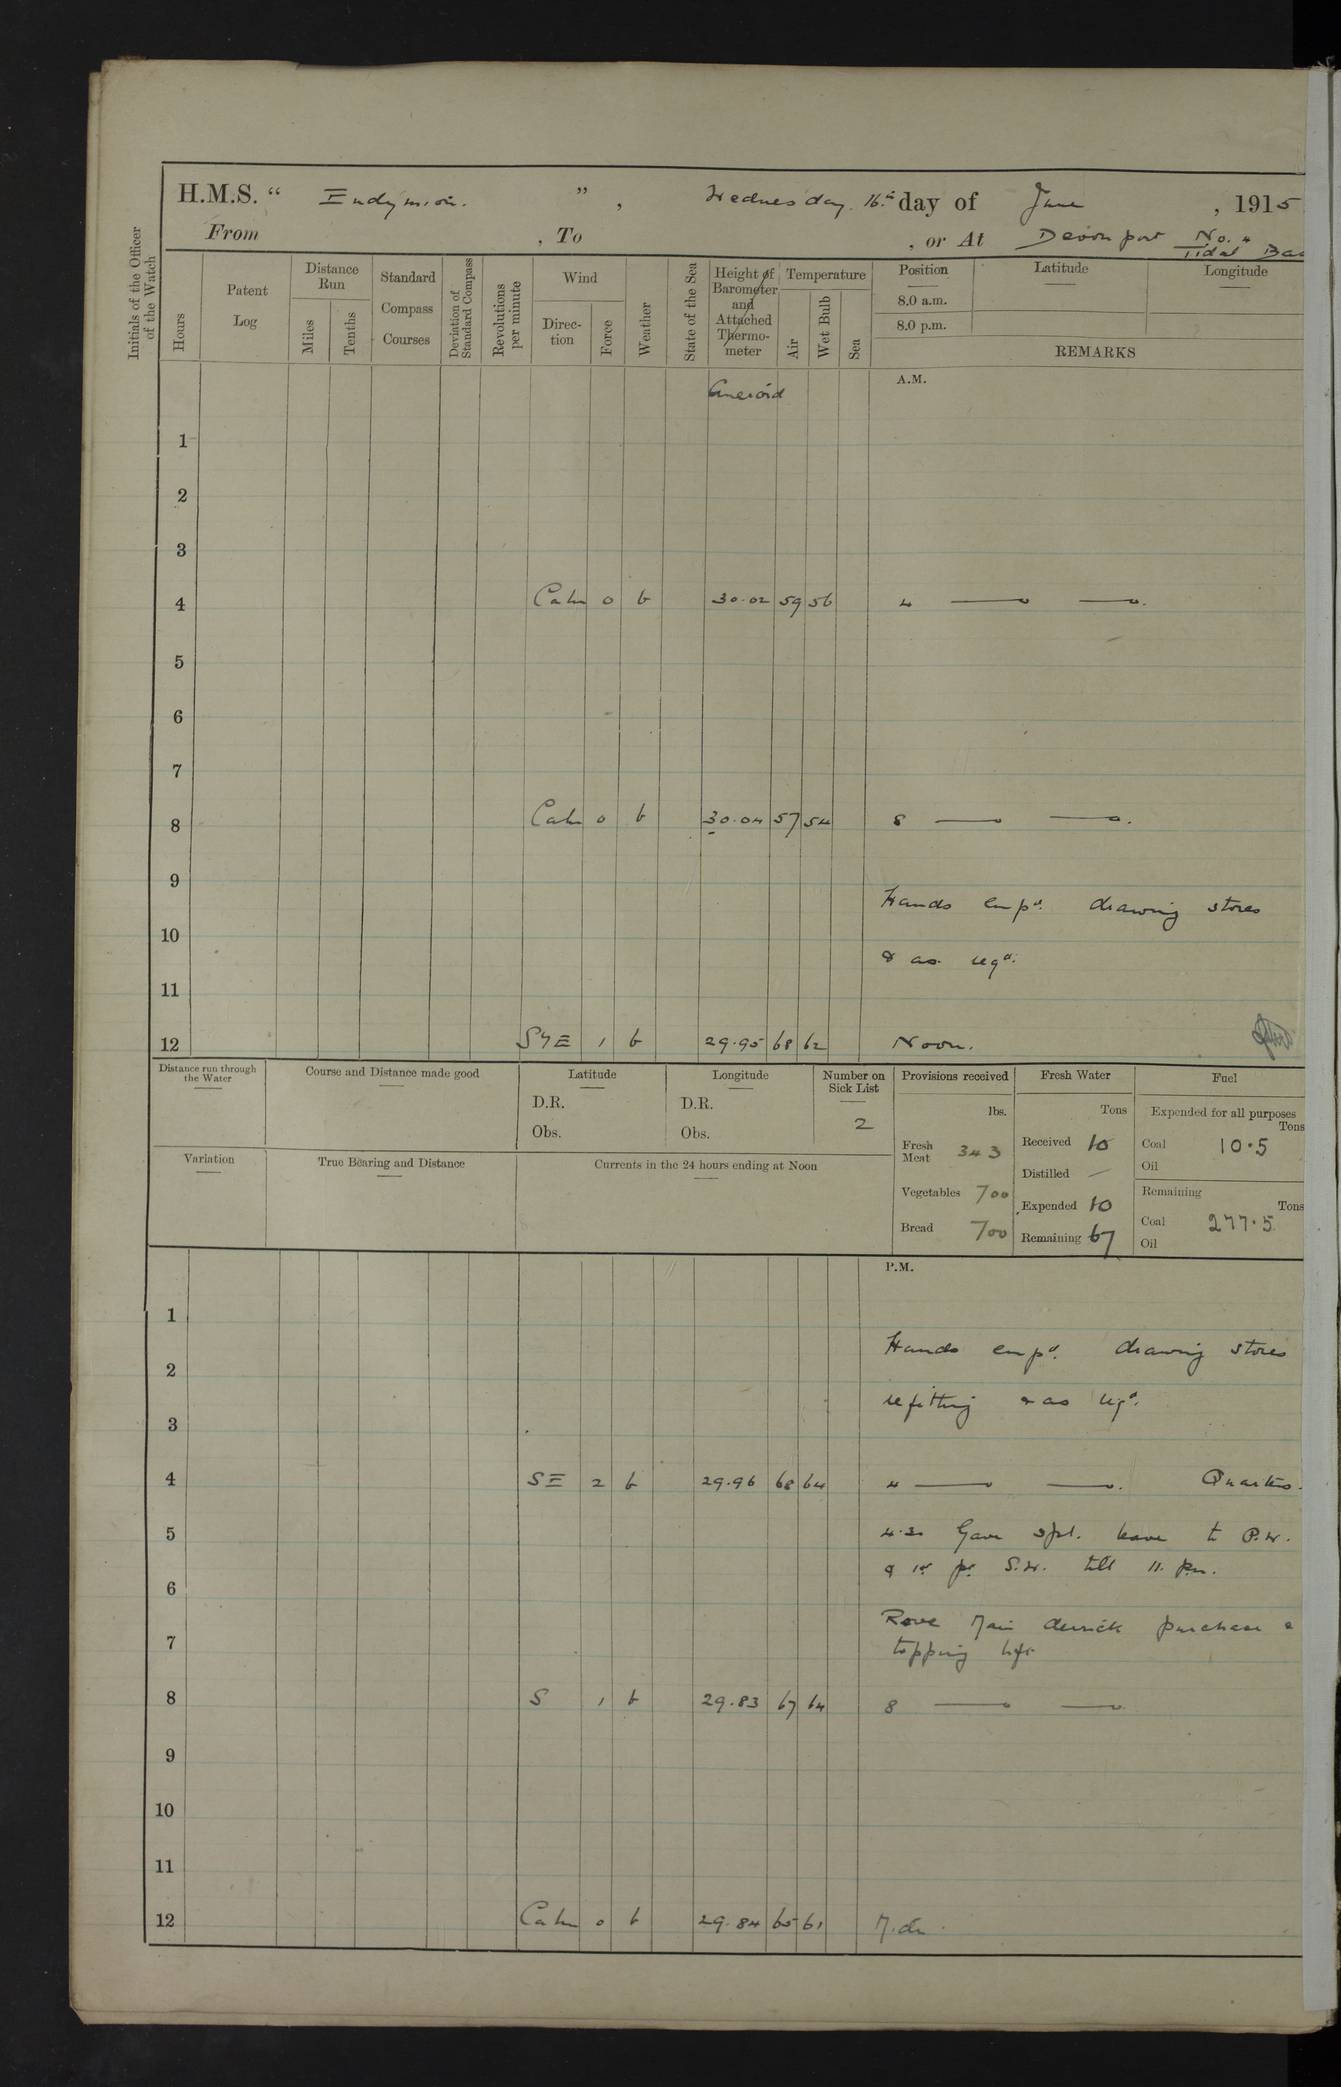 H.M.S. “ Endymion. ”, Wednesday. 16th day of June, 1915
From , To , or At Devonport No. 4
Tidal Bas
Initials of the Officer of the Watch
Hours
Patent Log
Distance Run
Miles
Tenths
Standard Compass Courses
Deviation of Standard Compass
Revolutions per minute
Wind
Direction
Force
Weather
State of the Sea
Height of Barometer and Attached Thermometer
Temperature
Air
Wet Bulb
Sea
Position
8.0 a.m.
8.0 p.m.
Latitude
Longitude
REMARKS
Aneroid
A.M.
1
2
3
4 Calm 0 b 30.02 59 56 4
5
6
7
8 Calm 0 b 30.04 57 54 8
9
Hands empd. drawing stores
10
& as reqd.
11
12 SyE 1 b 29.95 68 62 Noon.
Distance run through the Water
Course and Distance made good
Latitude
D.R.
Obs.
Longitude
D.R.
Obs.
Number on Sick List
2
Variation
True Bearing and Distance
Currents in the 24 hours ending at Noon
Provisions received
lbs.
Fresh Meat 343
Vegetables 700
Bread 700
Fresh Water
Tons
Received 10
Distilled —
Expended 10
Remaining 67
Fuel
Expended for all purposes
Tons
Coal 10.5
Oil
Remaining
Tons
Coal 277.5
Oil
P.M.
1
Hands empd. drawing stores
2
refitting & as reqd.
3
4 SE 2 b 29.96 68 64 4 Quarters.
5 4.30 Gave spl. leave to P.W.
& 1st pt S.W. till 11. pm.
6
Rove Main derrick purchase &
7
topping lift
8 S 1 b 29.83 67 64 8
9
10
11
12 Calm 0 b 29.84 65 61 M.dn.